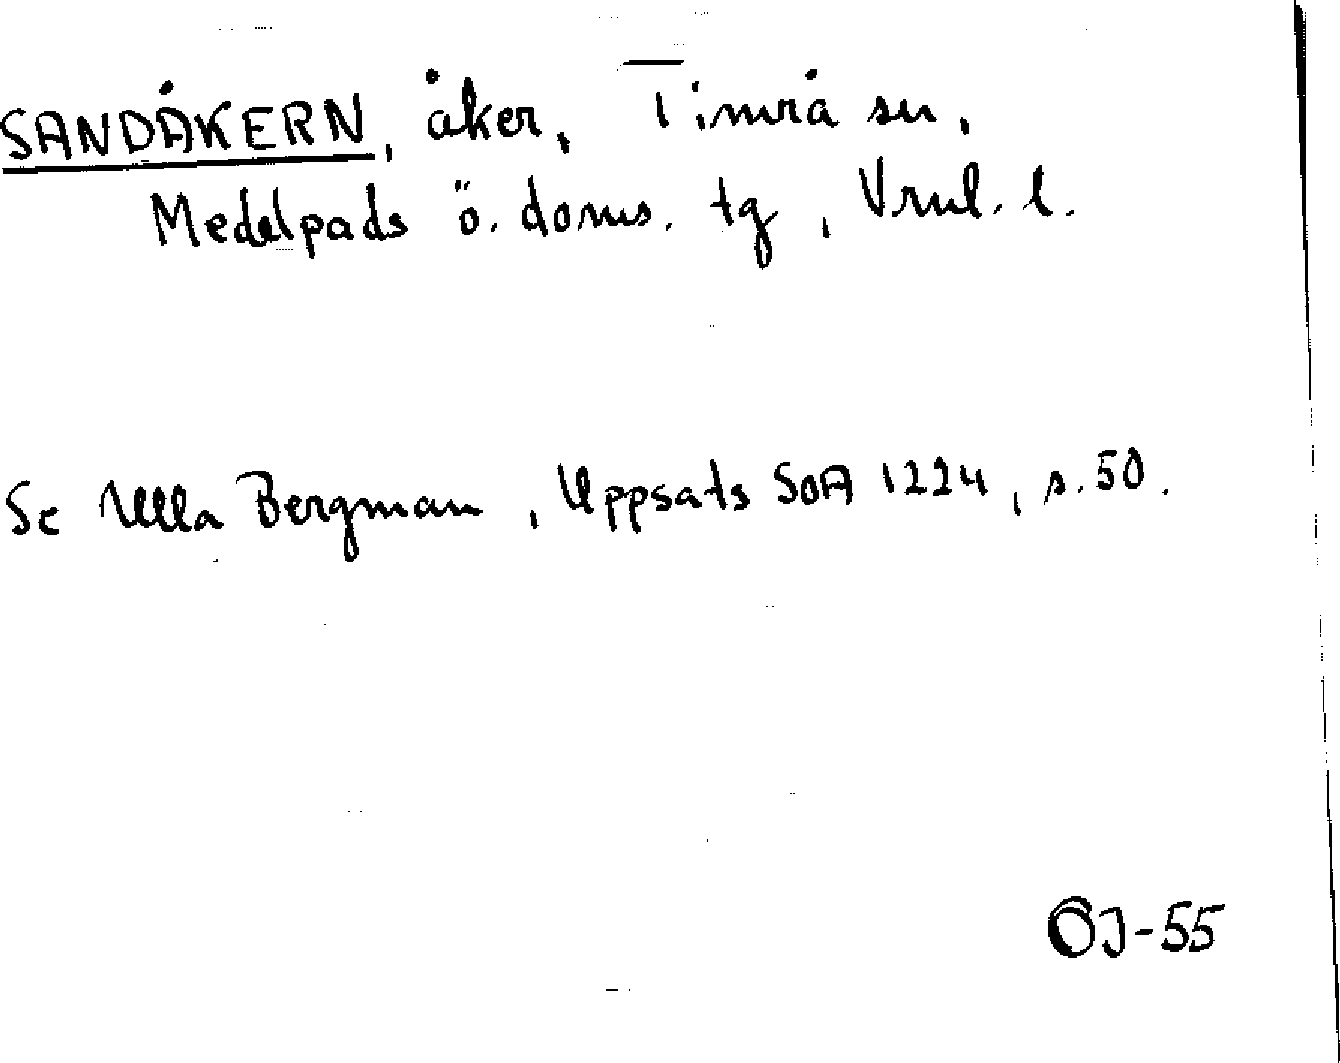 SANDÅKERN, åker, Timrå sn,
Medelpads ö. doms. tg, Vrnl. l.
Se Ulla Bergman, Uppsats SOA 1224, s. 50.
ÖJ-55